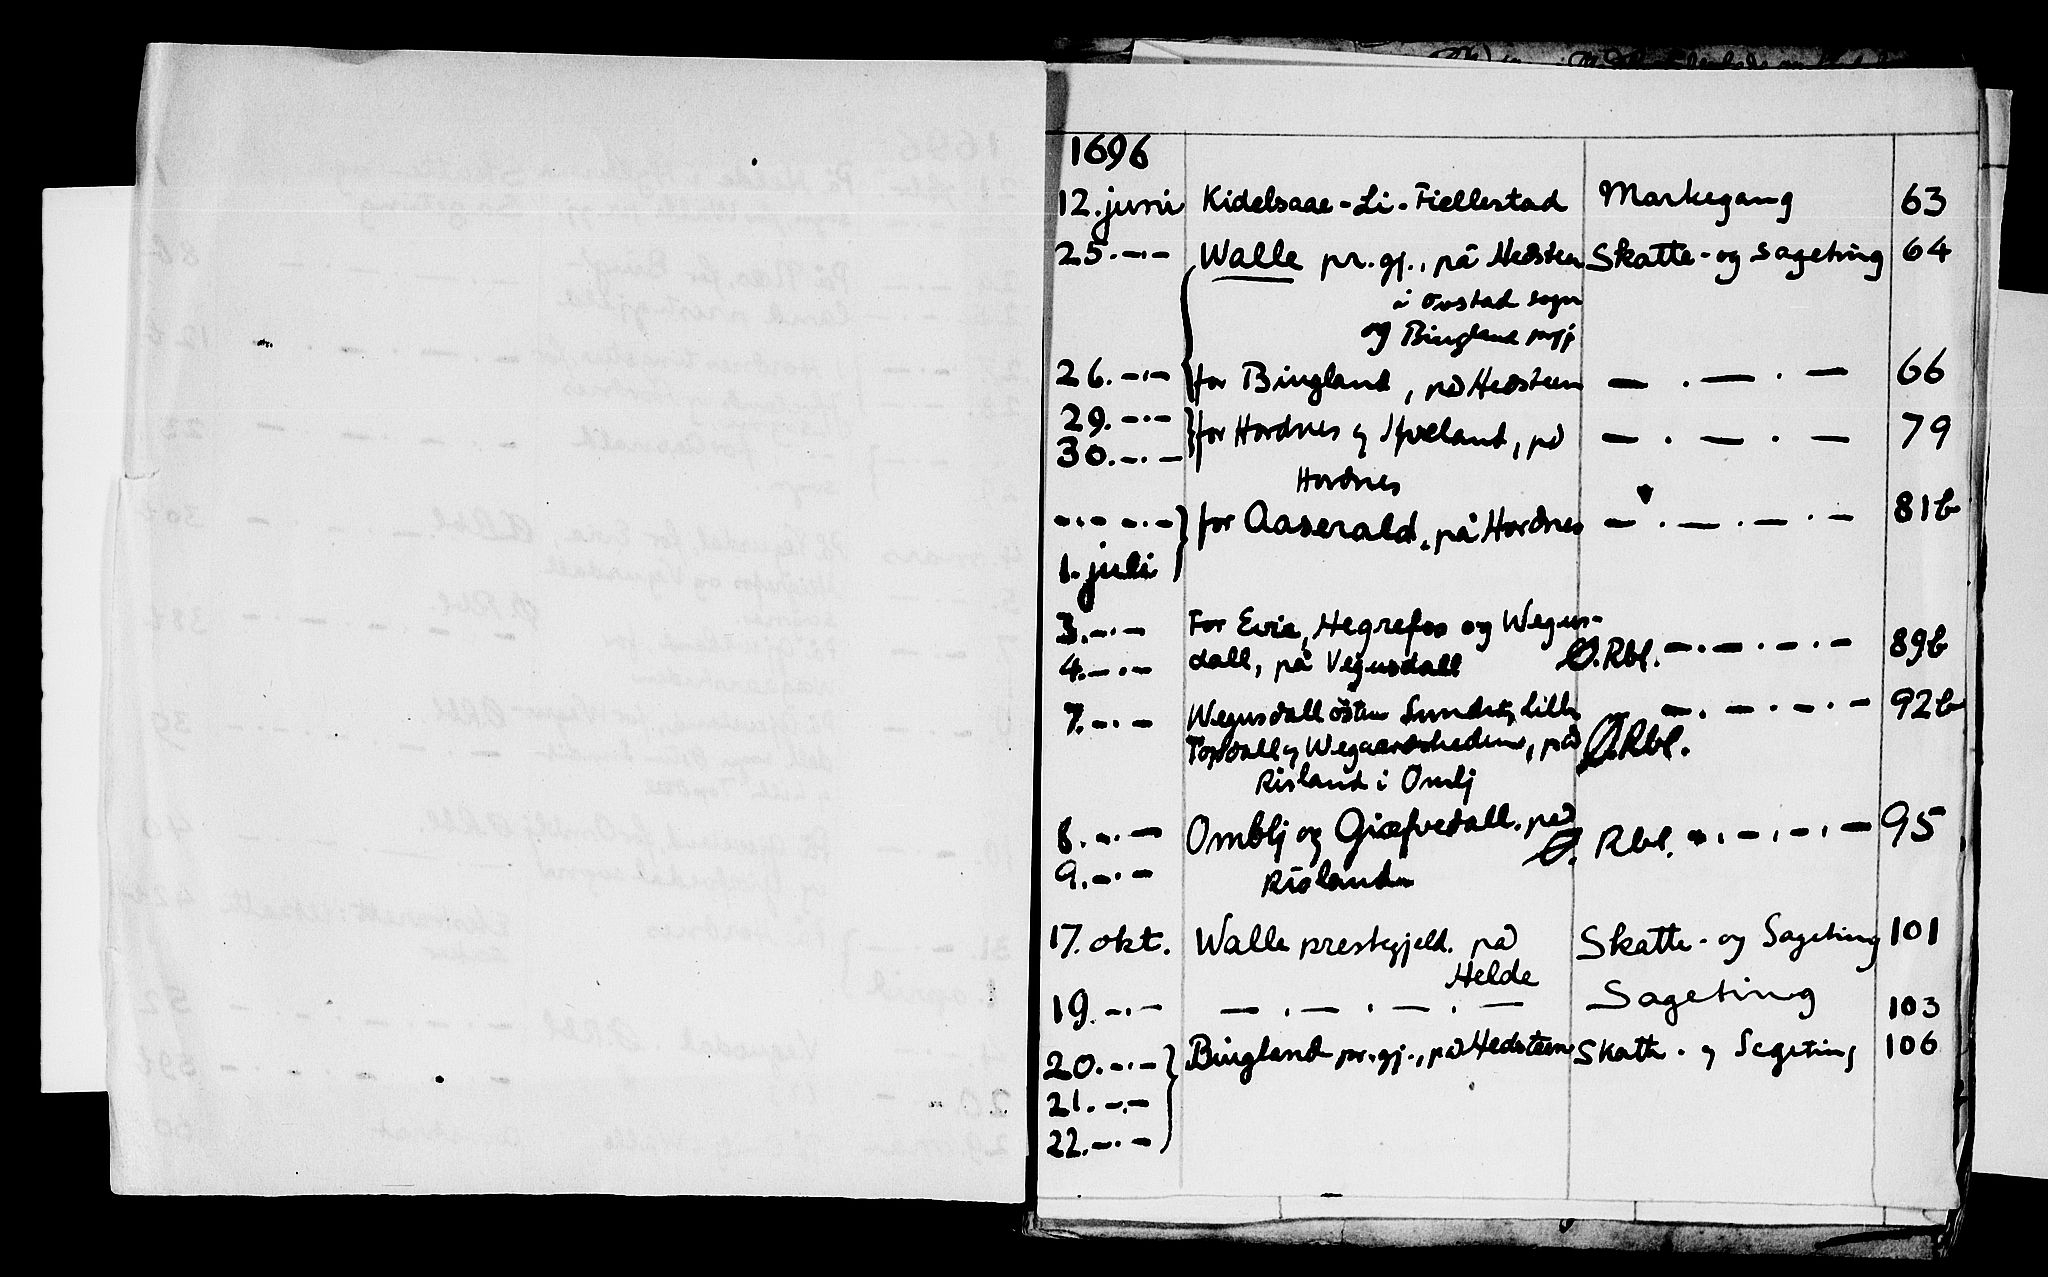 1696
12. juni Kidelsaae - Li - Fiellestad Markegang 63
25. -·- Walle pr.gj., på Hedsteen Skatte- og sageting 64
i Ovstad sogn
og Bingland prgj
26. -·- for Bingland, på Hedsteen — · — · — 66
29. -·- for Hordnes og Ifveland, på — · — · — 79
30. -·-
Hordnes
-·- -·- for Aaserald, på Hordnes — · — · — · — 81b
1. juli
3. -·- For Evie, Hegrefos og Wegus-
4. -·- dall, på Vegusdall Ø.Rbl. — · — · — · — 89b
7. -·- Wegusdall østen Sundet, lille — · — · — · — 92b
Topdall og Wegaardsheden, på Ø.Rbl.
Risland i Omlj
8. -·- Omblj og Giæfvedall, på Ø. Rbl. — · — · — · — 95
9. -·- Risland
17. okt. Walle prestegjeld, på Skatte- og Sageting 101
Helde
19. -·- — · — · — · — Sageting 103
20. -·- Bingland pr.gj., på Hedsteen Skatte- og Sageting 106
21. -·-
22. -·-